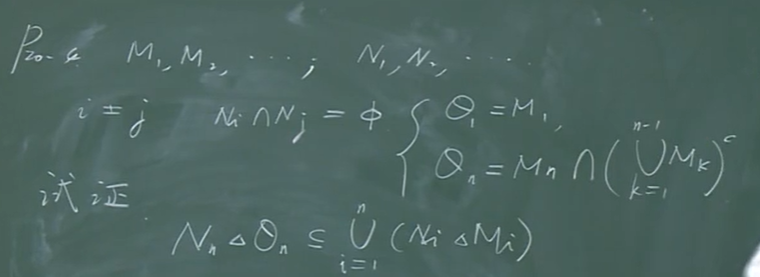 Prove M₁, M₂, ⋯; N₁, N₂, ⋯
i ≠ j Nᵢ ∩ Nⱼ = ϕ { Θ₁ = M₁,
Θₙ = Mₙ ∩ (⋃_{k=1}^{n-1} Mₖ)ᶜ
试证
Nₙ △ Θₙ ⊆ ⋃_{i=1}^{n} (Nᵢ △ Mᵢ)